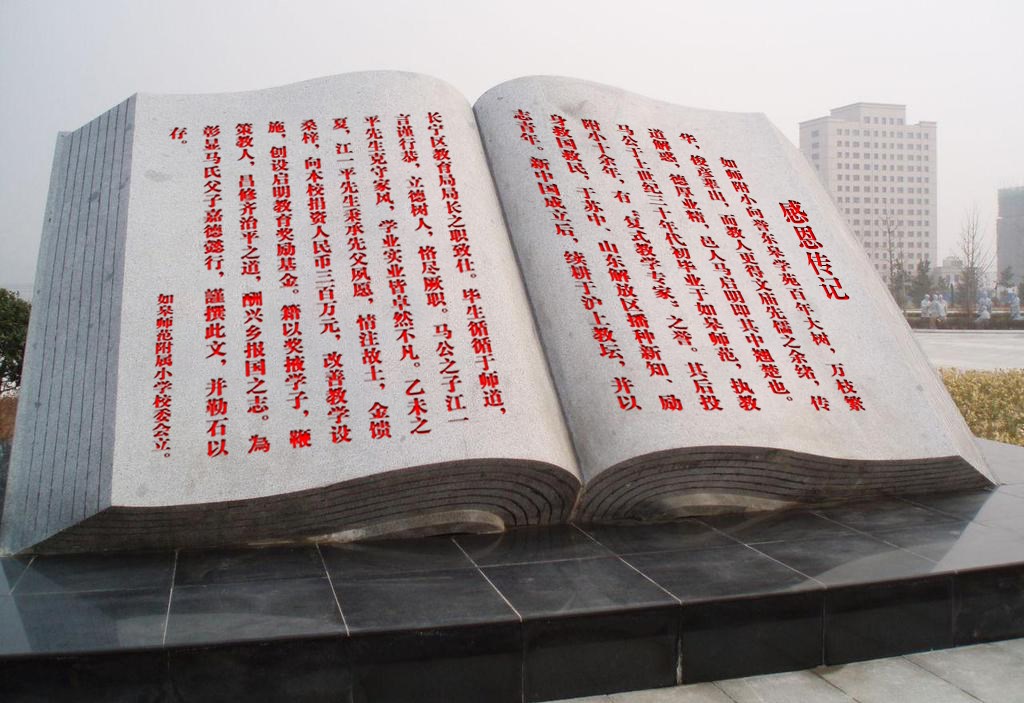 感恩传记
如师附小向誉东皋学苑百年大树，万枝繁
华，俊彦辈出，而教人更得文庙先儒之余绪，传
道解惑，德厚业精，邑人马启明即其中翘楚也。
马公于上世纪三十年代初毕业于如皋师范，执教
附小十余年，有“复式教学专家”之誉。其后投
身救国教民，于苏中、山东解放区播种新知、励
志青年。新中国成立后，续耕于沪上教坛，并以
长宁区教育局局长之职致仕。毕生循循于师道，
言谨行恭，立德树人，恪尽厥职。马公之子江一
平先生克守家风，学业实业皆卓然不凡。乙未之
夏，江一平先生秉承先父夙愿，情注故土，金馈
桑梓，向本校捐资人民币三百万元，改善教学设
施，创设启明教育奖励基金。籍以奖掖学子，鞭
策教人，吕修齐治平之道，酬兴乡报国之志。為
彰显马氏父子嘉德懿行，謹撰此文，并勒石以
存。
如皋师范附属小学校委会立。